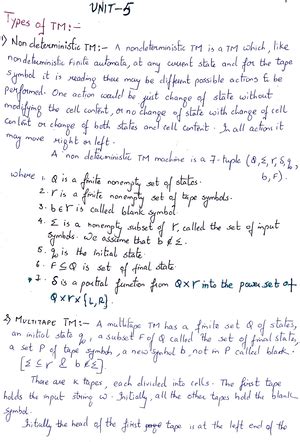 UNIT-5
Types of TM:-
1) Non deterministic TM:- A nondeterministic TM is a TM which, like
nondeterministic finite automata, at any current state and for the tape
symbol it is reading there may be different possible actions to be
performed. One action would be just change of state without
modifying the cell content, or no change of state with change of cell
content or change of both states and cell content. In all action it
may move right or left.
A non deterministic TM machine is a 7-tuple (Q, Σ, Γ, δ, q₀,
b, F).
where 1. Q is a finite nonempty set of states.
2. Γ is a finite nonempty set of tape symbols.
3. b∈Γ is called blank symbol
4. Σ is a nonempty subset of Γ, called the set of input
symbols. We assume that b∉Σ.
5. q₀ is the initial state
6. F⊆Q is set of final state
7. δ is a partial function from Q×Γ into the power set of
Q×Γ×{L,R}.
2) MULTITAPE TM:- A multitape TM has a finite set Q of states,
an initial state q₀, a subset F of Q called the set of final states,
a set P of tape symbols, a new symbol b, not in P called blank.
[Σ⊆Γ & b∉Σ].
There are k tapes, each divided into cells. The first tape
holds the input string w. Initially, all the other tapes hold the blank
symbol.
Initially the head of the first tape is at the left end of the